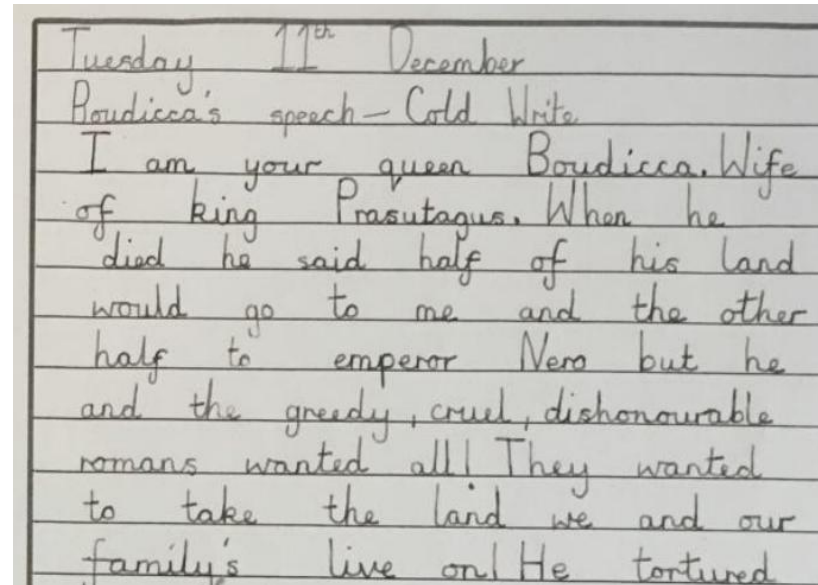 Tuesday 11th December
Boudicca's speech – Cold Write
I am your queen Boudicca. Wife
of king Prasutagus. When he
died he said half of his land
would go to me and the other
half to emperor Nero but he
and the greedy, cruel, dishonourable
romans wanted all! They wanted
to take the land we and our
family's live on! He tortured